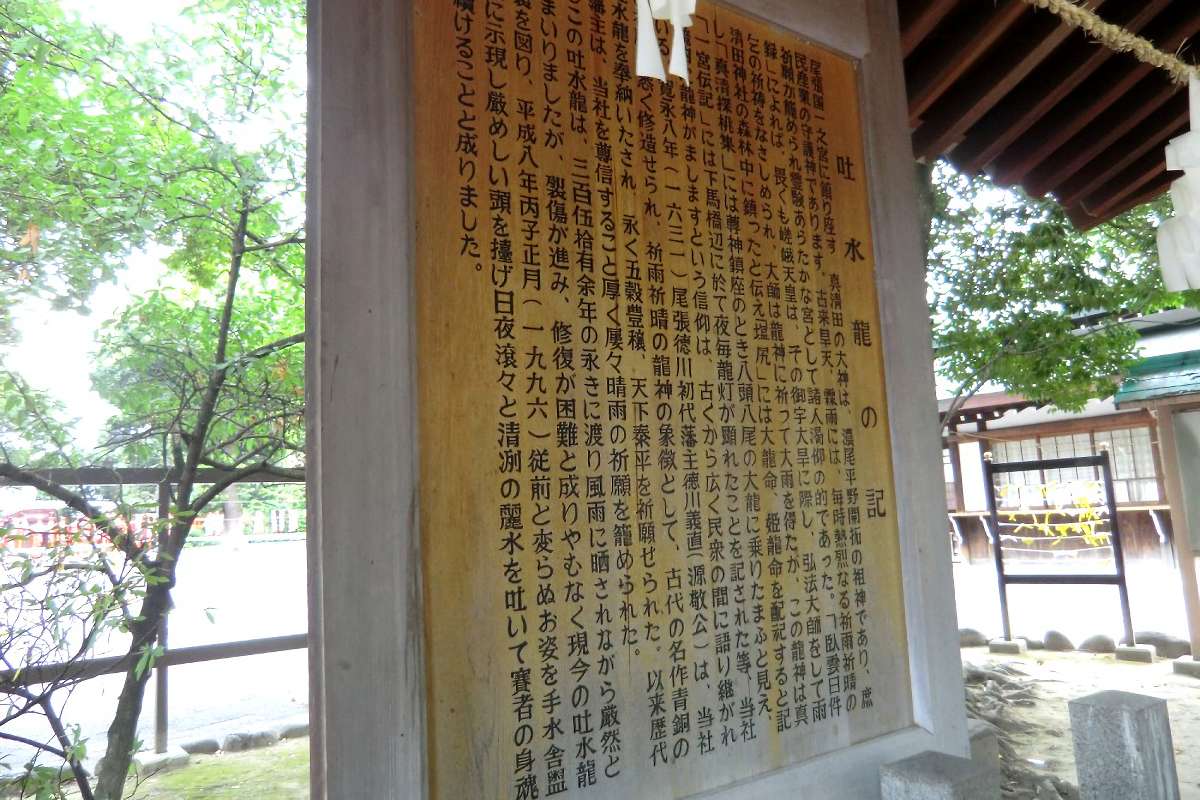 吐水龍の記
尾張国一之宮に鎮り座す、真清田の大神は、濃尾平野開拓の祖神であり、庶
民産業の守護神であります。古来旱天、霖雨には、毎時熱烈なる祈雨祈晴の
祈願が籠められ霊験あらたかな宮として諸人渇仰の的であった。「臥雲日件
録」によれば、畏くも嵯峨天皇は、その御宇大旱に際し、弘法大師をして雨
乞の祈祷をなさしめられ、大師は龍神に祈って大雨を得たが、この龍神は真
清田神社の森林中に鎮ったと伝え「塩尻」には大龍命、姫龍命を配祀すると記
し「真清探桃集」には尊神鎮座のとき八頭八尾の大龍に乗りたまふと見え、
「一宮伝記」には下馬橋辺に於て夜毎龍灯が顕れたことを記された等、当社
龍神がましますという信仰は、古くから広く民衆の間に語り継がれ
いる。寛永八年(一六三一)尾張徳川初代藩主徳川義直(源敬公)は、当社
悉く修造せられ、祈雨祈晴の龍神の象徴として、古代の名作青銅の
水龍を奉納いたされ、永く五穀豊穣、天下泰平を祈願せられた。以来歴代
藩主は、当社を尊信すること厚く屡々晴雨の祈願を籠められた。
この吐水龍は、三百伍拾有余年の永きに渡り風雨に晒されながら厳然と
まいりましたが、褻傷が進み、修復が困難と成りやむなく現今の吐水龍
を図り、平成八年丙子正月(一九九六)従前と変らぬお姿を手水舎盥
に示現し厳めしい頭を擡げ日夜滾々と清冽の麗水を吐いて賽者の身魂
続けることと成りました。